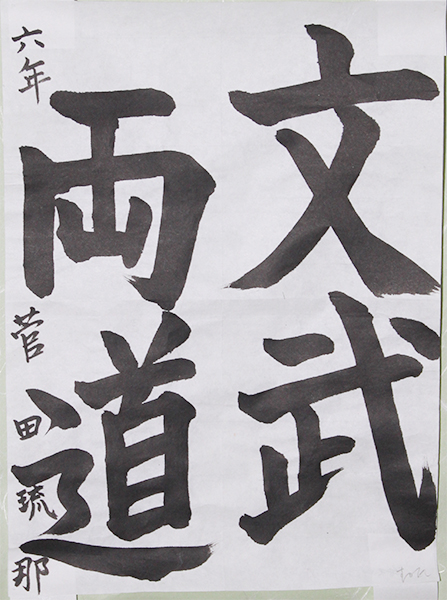 文武
両道
六年 菅田琉那